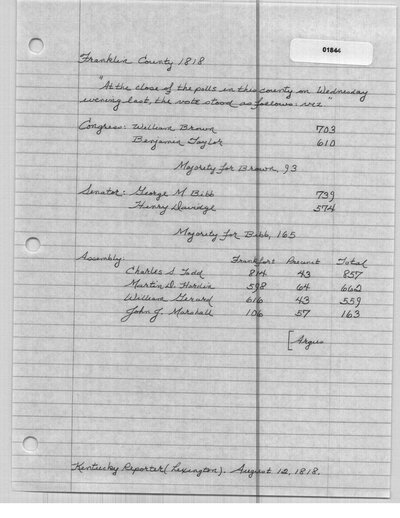 01844
Franklin County 1818
"At the close of the polls in this county on Wednesday
evening last, the vote stood as follows: viz."
Congress: William Brown 703
Benjamin Taylor 610
Majority for Brown, 93
Senator: George M Bibb 739
Henry Davidge 574
Majority for Bibb, 165
Assembly: Frankfort Precinct Total
Charles S. Todd 814 43 857
Martin D. Hardin 598 64 662
William Gerard 616 43 559
John J. Marshall 106 57 163
[Argus
Kentucky Reporter (Lexington). August 12, 1818.